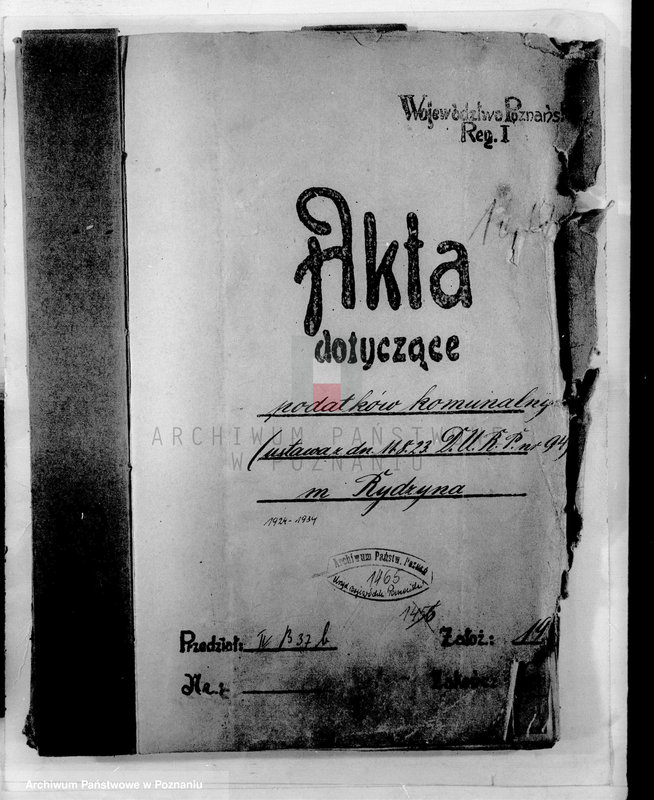 Województwo Poznańs
Reg. I
Akta
dotyczące
podatków komunalny
(ustawa z dn 14.8.23 D.U.R.P. nr 94)
m Rydzyna
1924-1934
ARCHIWUM PAŃSTWOWE
W POZNANIU
Archiwum Państw. Poznań
1465
1456
Przedział: IV B 37 b
Założ: 19
Nr.:
Archiwum Państwowe w Poznaniu